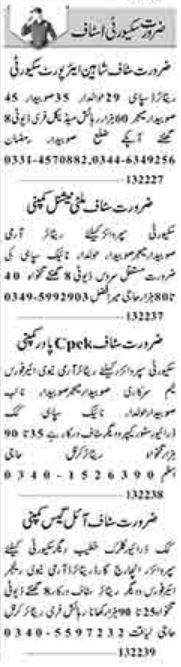 ضرورت سکیورٹی اسٹاف
ضرورت سٹاف شاہین ایئرپورٹ سکیورٹی
ریٹائرڈ سپاہی 29 حوالدار 35 صوبیدار 45
صوبیدار میجر 60 ہزار رہائش میڈیکل فری ڈیوٹی 8
گھنٹے آپکے ضلع صوبیدار رمضان
0331-4570882,0344-6349256
132227
ضرورت سٹاف ملٹی نیشنل کمپنی
سکیورٹی سپروائزر کیلئے ریٹائرڈ آرمی
صوبیدار میجر صوبیدار حوالدار نائیک سپاہی کی
ضرورت مستقل سروس ڈیوٹی 8 گھنٹے تنخواہ 40
تا 80 ہزار حاجی میر افضل 0349-5992903
132237
ضرورت سٹاف Cpek پاور کمپنی
سکیورٹی سپروائزر کیلئے ریٹائرڈ آرمی نیوی ائیرفورس
نیم سرکاری صوبیدار میجر صوبیدار نائب
صوبیدار حوالدار نائیک سپاہی کک
ڈرائیور سٹور کیپر ودیگر سٹاف درکار ہے 35 تا 90
ہزار تنخواہ ریٹائرڈ کرنل حاجی
اسلم 0340-1526390
132238
ضرورت سٹاف آئل گیس کمپنی
کک ڈرائیور کلرک خطیب دیگر سکیورٹی کیلئے
سپروائزر انچارج گارڈ ریٹائرڈ آرمی نیوی رینجر
ائیرفورس ودیگر ریٹائرڈ سٹاف درکار 8 گھنٹے ڈیوٹی
تنخواہ 25 تا 90 ہزار کھانا رہائش فری ریٹائرڈ کرنل
حاجی لیاقت 0340-5597232
132239